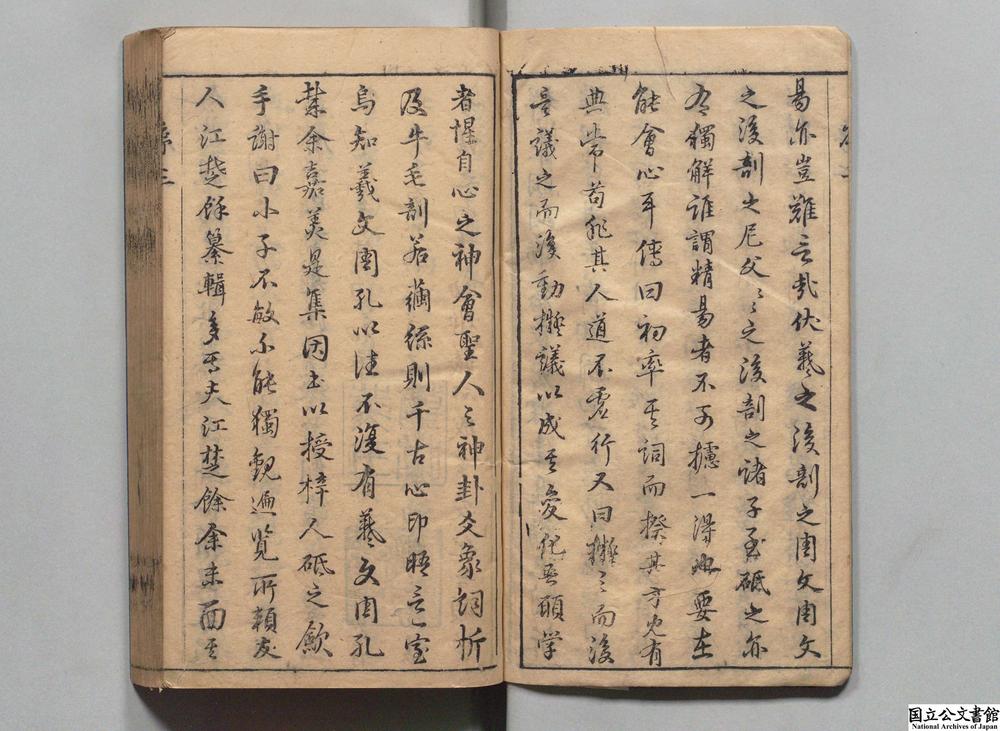 易亦豈難言哉伏羲之後剖之周文周文
之後剖之尼父々之後剖之諸子至砥之亦
有獨解誰謂精易者不可攄一得也要在
能會心耳傳曰初率其詞而揆其方既有
典常苟非其人道不虛行又曰擬之而後
言議之而後動擬議以成其變化吾願学
者惺自心之神會聖人之神卦爻象詞析
及牛毛剖若繭絲則千古心印晤言一室
烏知羲文周孔以往不復有羲文周孔
余嘉美是集因書以授梓人砥之歛
手謝曰小子不敏不能獨觀遍览所賴友
人江楚餘纂輯多焉夫江楚餘余未面其
序三
国立公文書館
National Archives of Japan